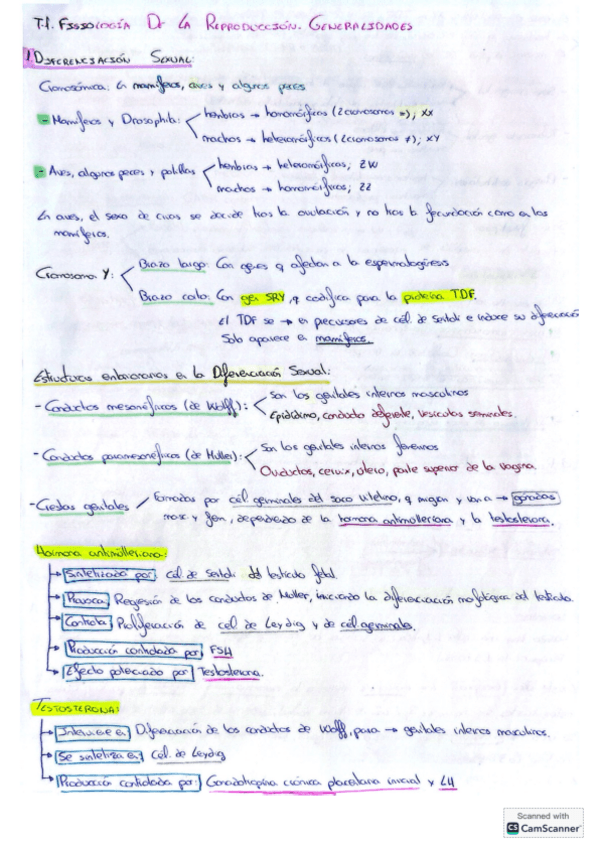 T.1. FISIOLOGÍA DE LA REPRODUCCIÓN. GENERALIDADES
1. DIFERENCIACIÓN SEXUAL:
Cromosómica: En mamíferos, aves y algunos peces
- Mamíferos y Drosophila: hembras → homomórficos (2 cromosomas =); XX
machos → heteromórficos (2 cromosomas ≠); XY
- Aves, algunos peces y polillas hembras → heteromórficos; ZW
machos → homomórficos; ZZ
En aves, el sexo de crías se decide tras la ovulación y no tras la fecundación como en los
mamíferos.
Cromosoma Y: Brazo largo: Con genes q afectan a la espermatogénesis
Brazo corto: Con gen SRY, q codifica para la proteína TDF.
El TDF se → en precursores de cél de Sertoli e induce su diferenciación
Solo aparece en mamíferos.
Estructuras embrionarias en la Diferenciación Sexual:
- Conductos mesonéfricos (de Wolff): son los genitales internos masculinos
Epidídimo, conducto deferente, vesículas seminales.
- Conductos paramesonéfricos (de Müller): Son los genitales internos femeninos
Oviductos, cervix, útero, parte superior de la vagina.
- Crestas genitales Formadas por cél germinales del saco vitelino, q migran y van a → gónadas
masc y fem, dependiendo de la hormona antimülleriana y la testosterona.
Hormona antimülleriana:
Sintetizada por: Cél de Sertoli del testículo fetal.
Provoca: Regresión de los conductos de Müller, iniciando la diferenciación morfológica del testículo.
Controla: Proliferación de cél de Leydig y de cél germinales.
Producción controlada por: FSH
Efecto potenciado por: Testosterona.
TESTOSTERONA:
Interviene en: Diferenciación de los conductos de Wolff, para → genitales internos masculinos.
Se sintetiza en: Cél. de Leydig
Producción controlada por: Gonadotropina coriónica placentaria inicial y LH
Scanned with
CS CamScanner